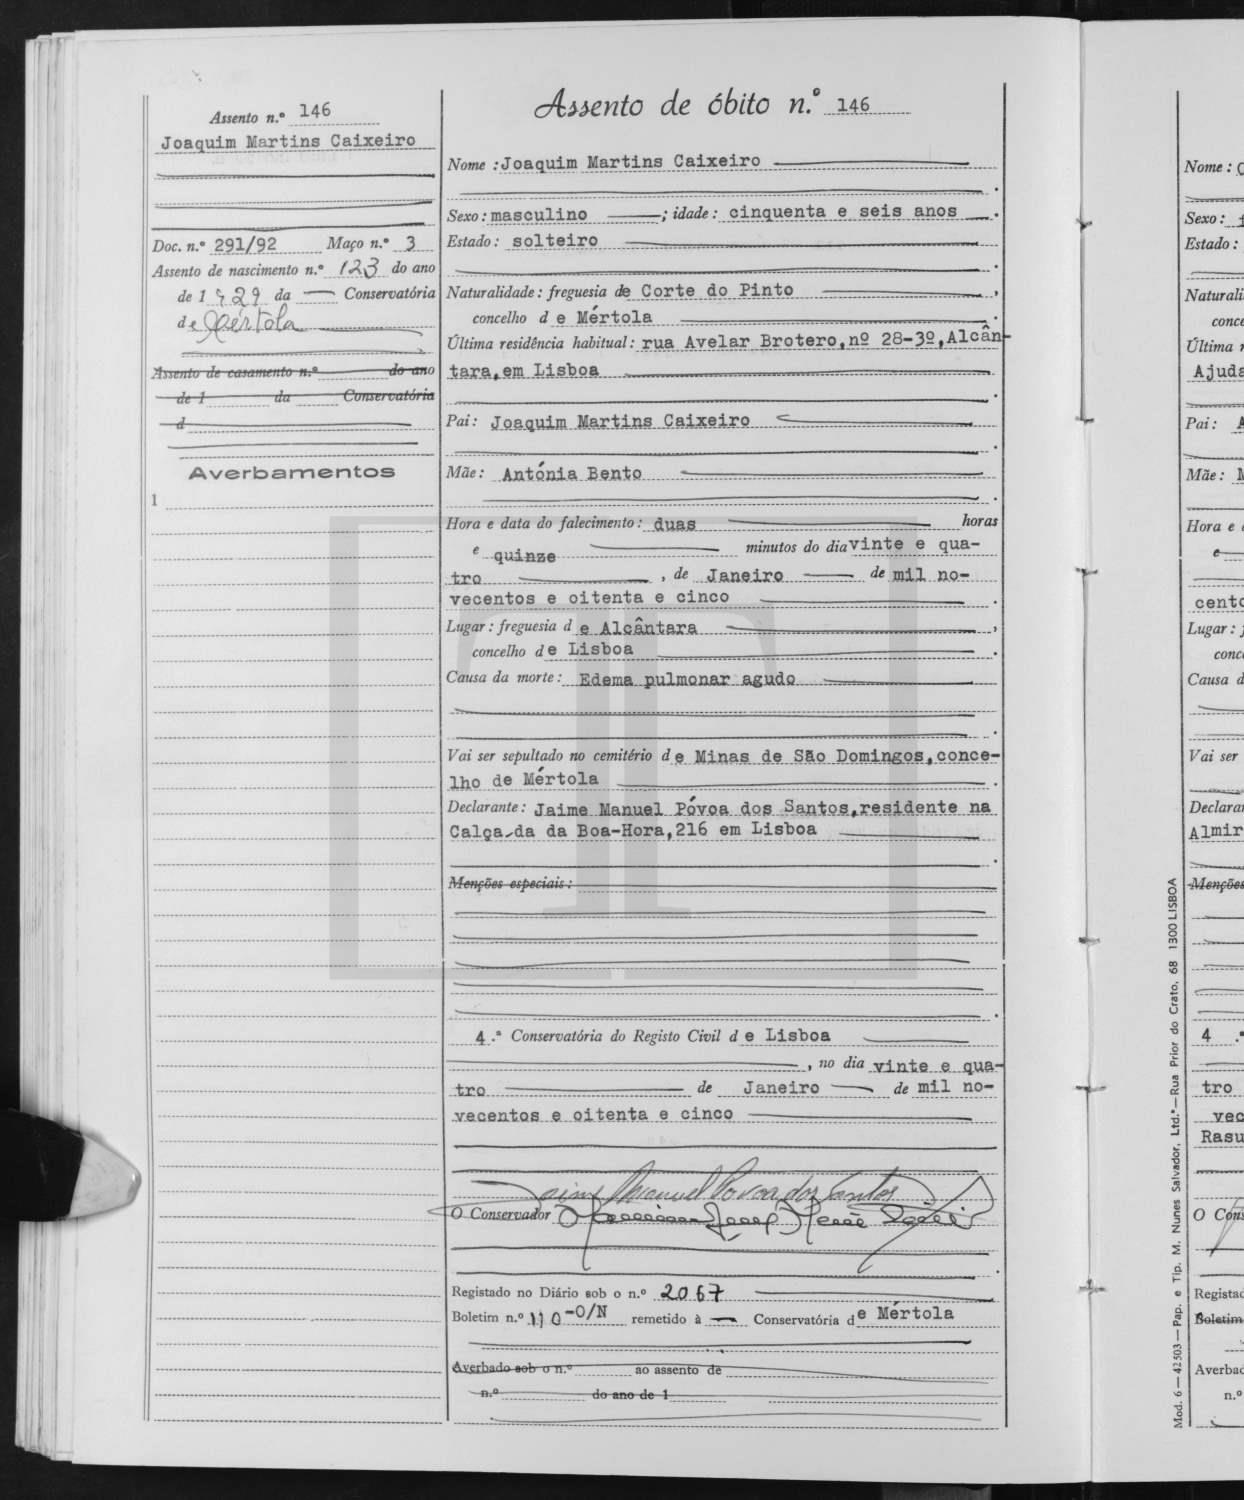 Assento n.º 146
Joaquim Martins Caixeiro
Doc. n.º 291/92 Maço n.º 3
Assento de nascimento n.º 123 do ano
de 1 929 da Conservatória
de Mértola
Assento de casamento n.º do ano
de 1 da Conservatória
d
Averbamentos
1
Assento de óbito n.º 146
Nome : Joaquim Martins Caixeiro
Sexo : masculino ; idade : cinquenta e seis anos .
Estado : solteiro
Naturalidade : freguesia de Corte do Pinto ,
concelho d e Mértola .
Última residência habitual : rua Avelar Brotero,nº 28-3º,Alcân-
tara,em Lisboa
Pai : Joaquim Martins Caixeiro
Mãe : Antónia Bento
Hora e data do falecimento : duas horas
e quinze minutos do dia vinte e qua-
tro , de Janeiro de mil no-
vecentos e oitenta e cinco .
Lugar : freguesia d e Alcântara ,
concelho de Lisboa .
Causa da morte : Edema pulmonar agudo
Vai ser sepultado no cemitério de Minas de São Domingos,conce-
lho de Mértola .
Declarante : Jaime Manuel Póvoa dos Santos,residente na
Calça-da da Boa-Hora,216 em Lisboa
Menções especiais :
4.ª Conservatória do Registo Civil d e Lisboa
, no dia vinte e qua-
tro de Janeiro de mil no-
vecentos e oitenta e cinco
Jaime Manuel Povoa dos Santos
O Conservador
Registado no Diário sob o n.º 2067
Boletim n.º 110-O/N remetido à Conservatória de Mértola
Averbado sob o n.º ao assento de
n.º do ano de 1
Mod. 6 — 42503 — Pap. e Tip. M. Nunes Salvador, Ltd.ª — Rua Prior do Crato, 68 1300 LISBOA
Nome :
Sexo :
Estado :
Naturali
conce
Última r
Ajuda
Pai :
Mãe :
Hora e
e
cento
Lugar :
conc
Causa d
Vai ser
Declarar
Almir
Menções
4 .ª
tro
vec
Rasu
O Cons
Registad
Boletim
Averbad
n.º